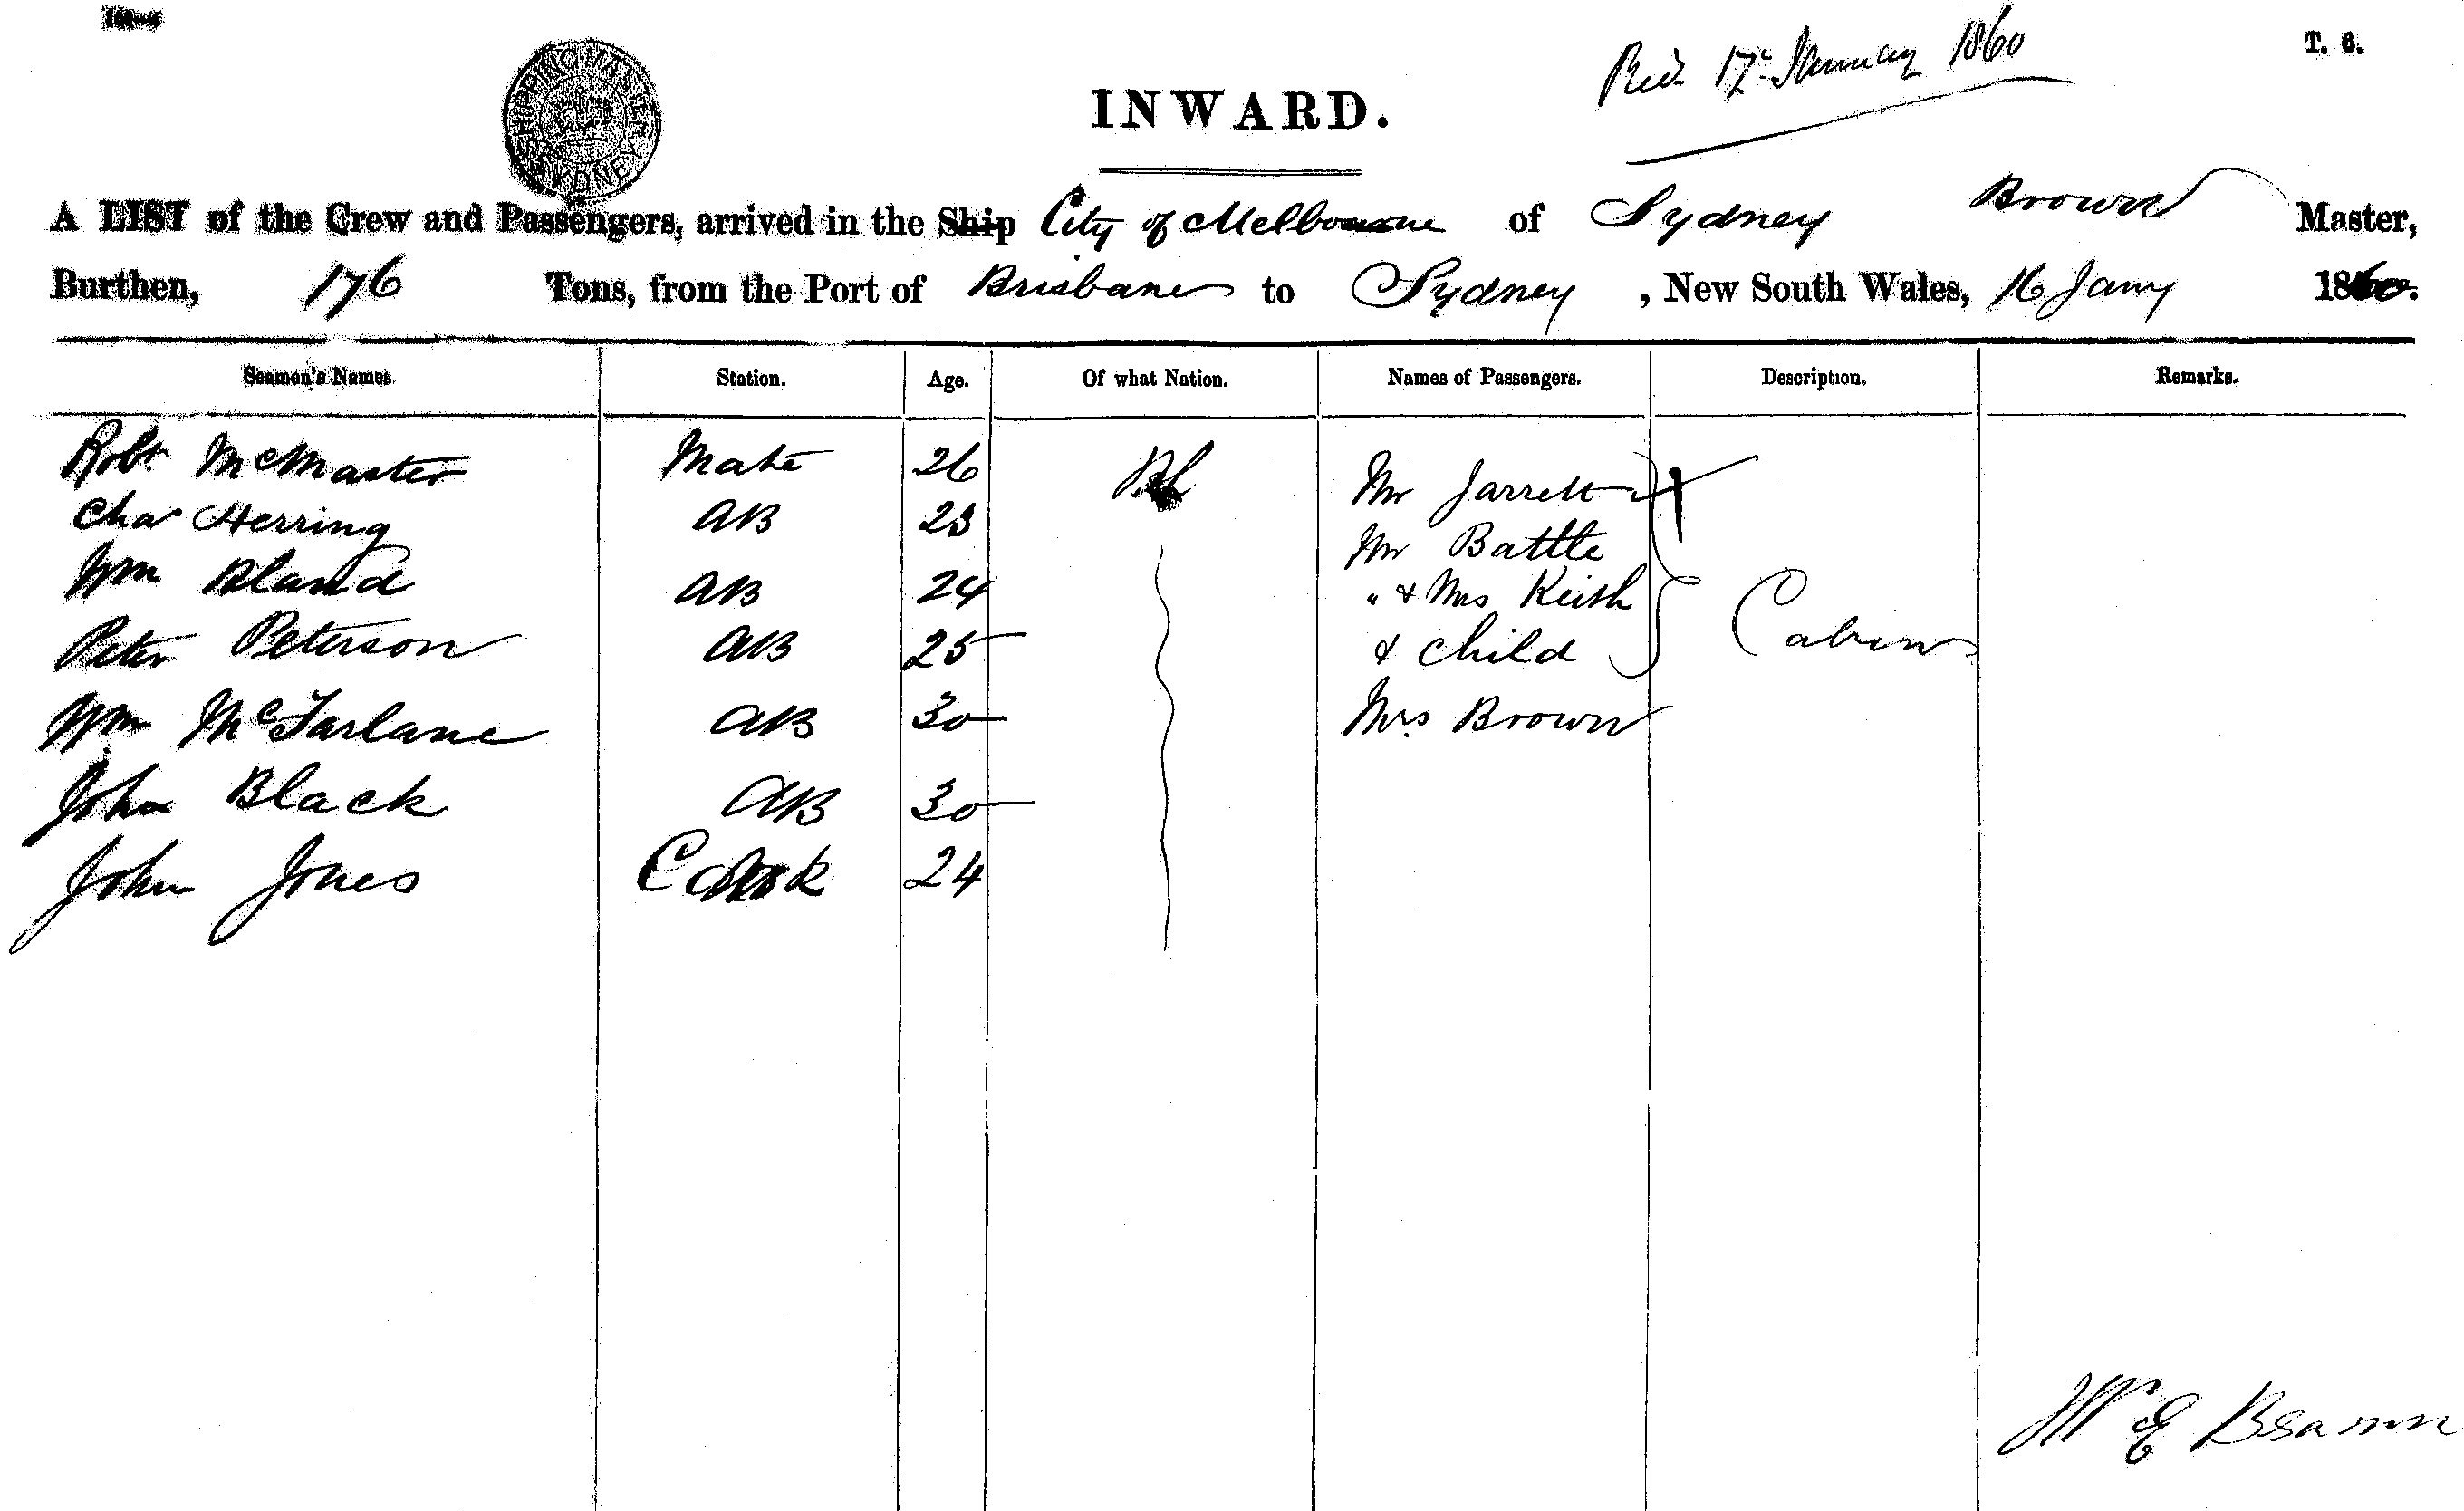 Recd 17th January 1860
T. 6.
SHIPPING MASTER SYDNEY
INWARD.
A LIST of the Crew and Passengers, arrived in the Ship City of Melbourne of Sydney Brown Master,
Burthen, 176 Tons, from the Port of Brisbane to Sydney, New South Wales, 16 Jany 1860.
Seamen's Names. Station. Age. Of what Nation. Names of Passengers. Description. Remarks.
Robt McMaster Mate 26 Mr Jarrett
Chas Herring AB 23 Mr Battle
Wm Bland AB 24 " & Mrs Keith
Peter Peterson AB 25 & child Cabin
Wm McFarlane AB 30 Mrs Brown
John Black AB 30
John Jones Cook 24
Brown